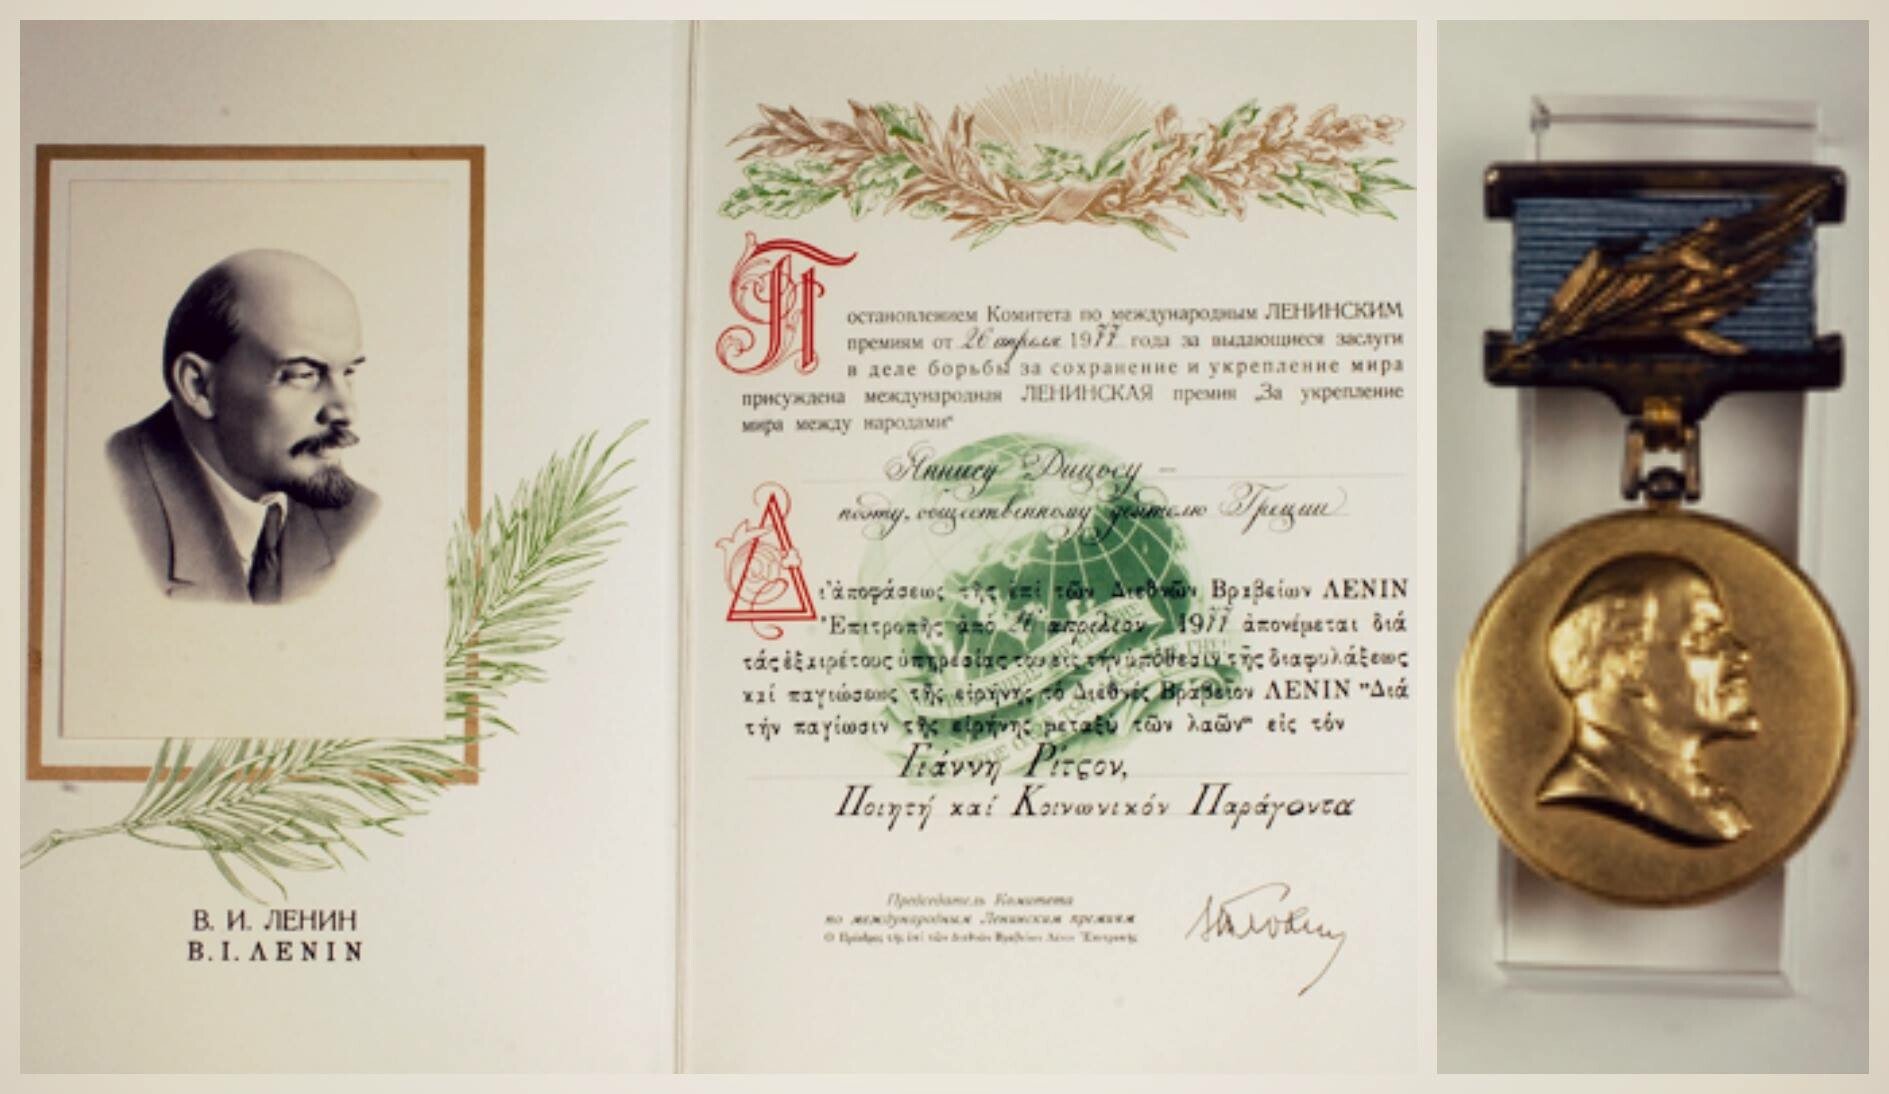 В. И. ЛЕНИН
Β. Ι. ΛΕΝΙΝ
Постановлением Комитета по международным ЛЕНИНСКИМ
премиям от 26 апреля 1977 года за выдающиеся заслуги
в деле борьбы за сохранение и укрепление мира
присуждена международная ЛЕНИНСКАЯ премия „За укрепление
мира между народами“
Яннису Рицосу –
поэту, общественному деятелю Греции
Δι'ἀποφάσεως τῆς ἐπί τῶν Διεθνῶν Βραβείων ΛΕΝΙΝ
Ἐπιτροπῆς ἀπό 26 απριλεον 1977 ἀπονέμεται διά
τάς ἐξαιρέτους ὑπηρεσίας του εἰς τήν ὑπόθεσιν τῆς διαφυλάξεως
καί παγιώσεως τῆς εἰρήνης τό Διεθνές Βραβεῖον ΛΕΝΙΝ "Διά
τήν παγίωσιν τῆς εἰρήνης μεταξύ τῶν λαῶν" εἰς τόν
Γιάννη Ρίτσον,
Ποιητή καί Κοινωνικόν Παράγοντα
Председатель Комитета
по международным Ленинским премиям
Ὁ Πρόεδρος τῆς ἐπί τῶν Διεθνῶν Βραβείων Λένιν Ἐπιτροπῆς